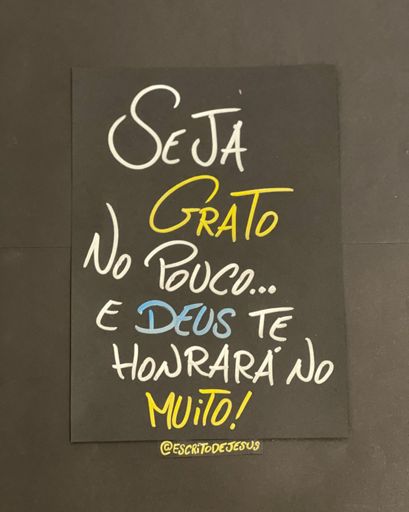 SEJA
GRATO
NO POUCO...
E DEUS TE
HONRARÁ NO
MUITO!
@ESCRITODEJESUS